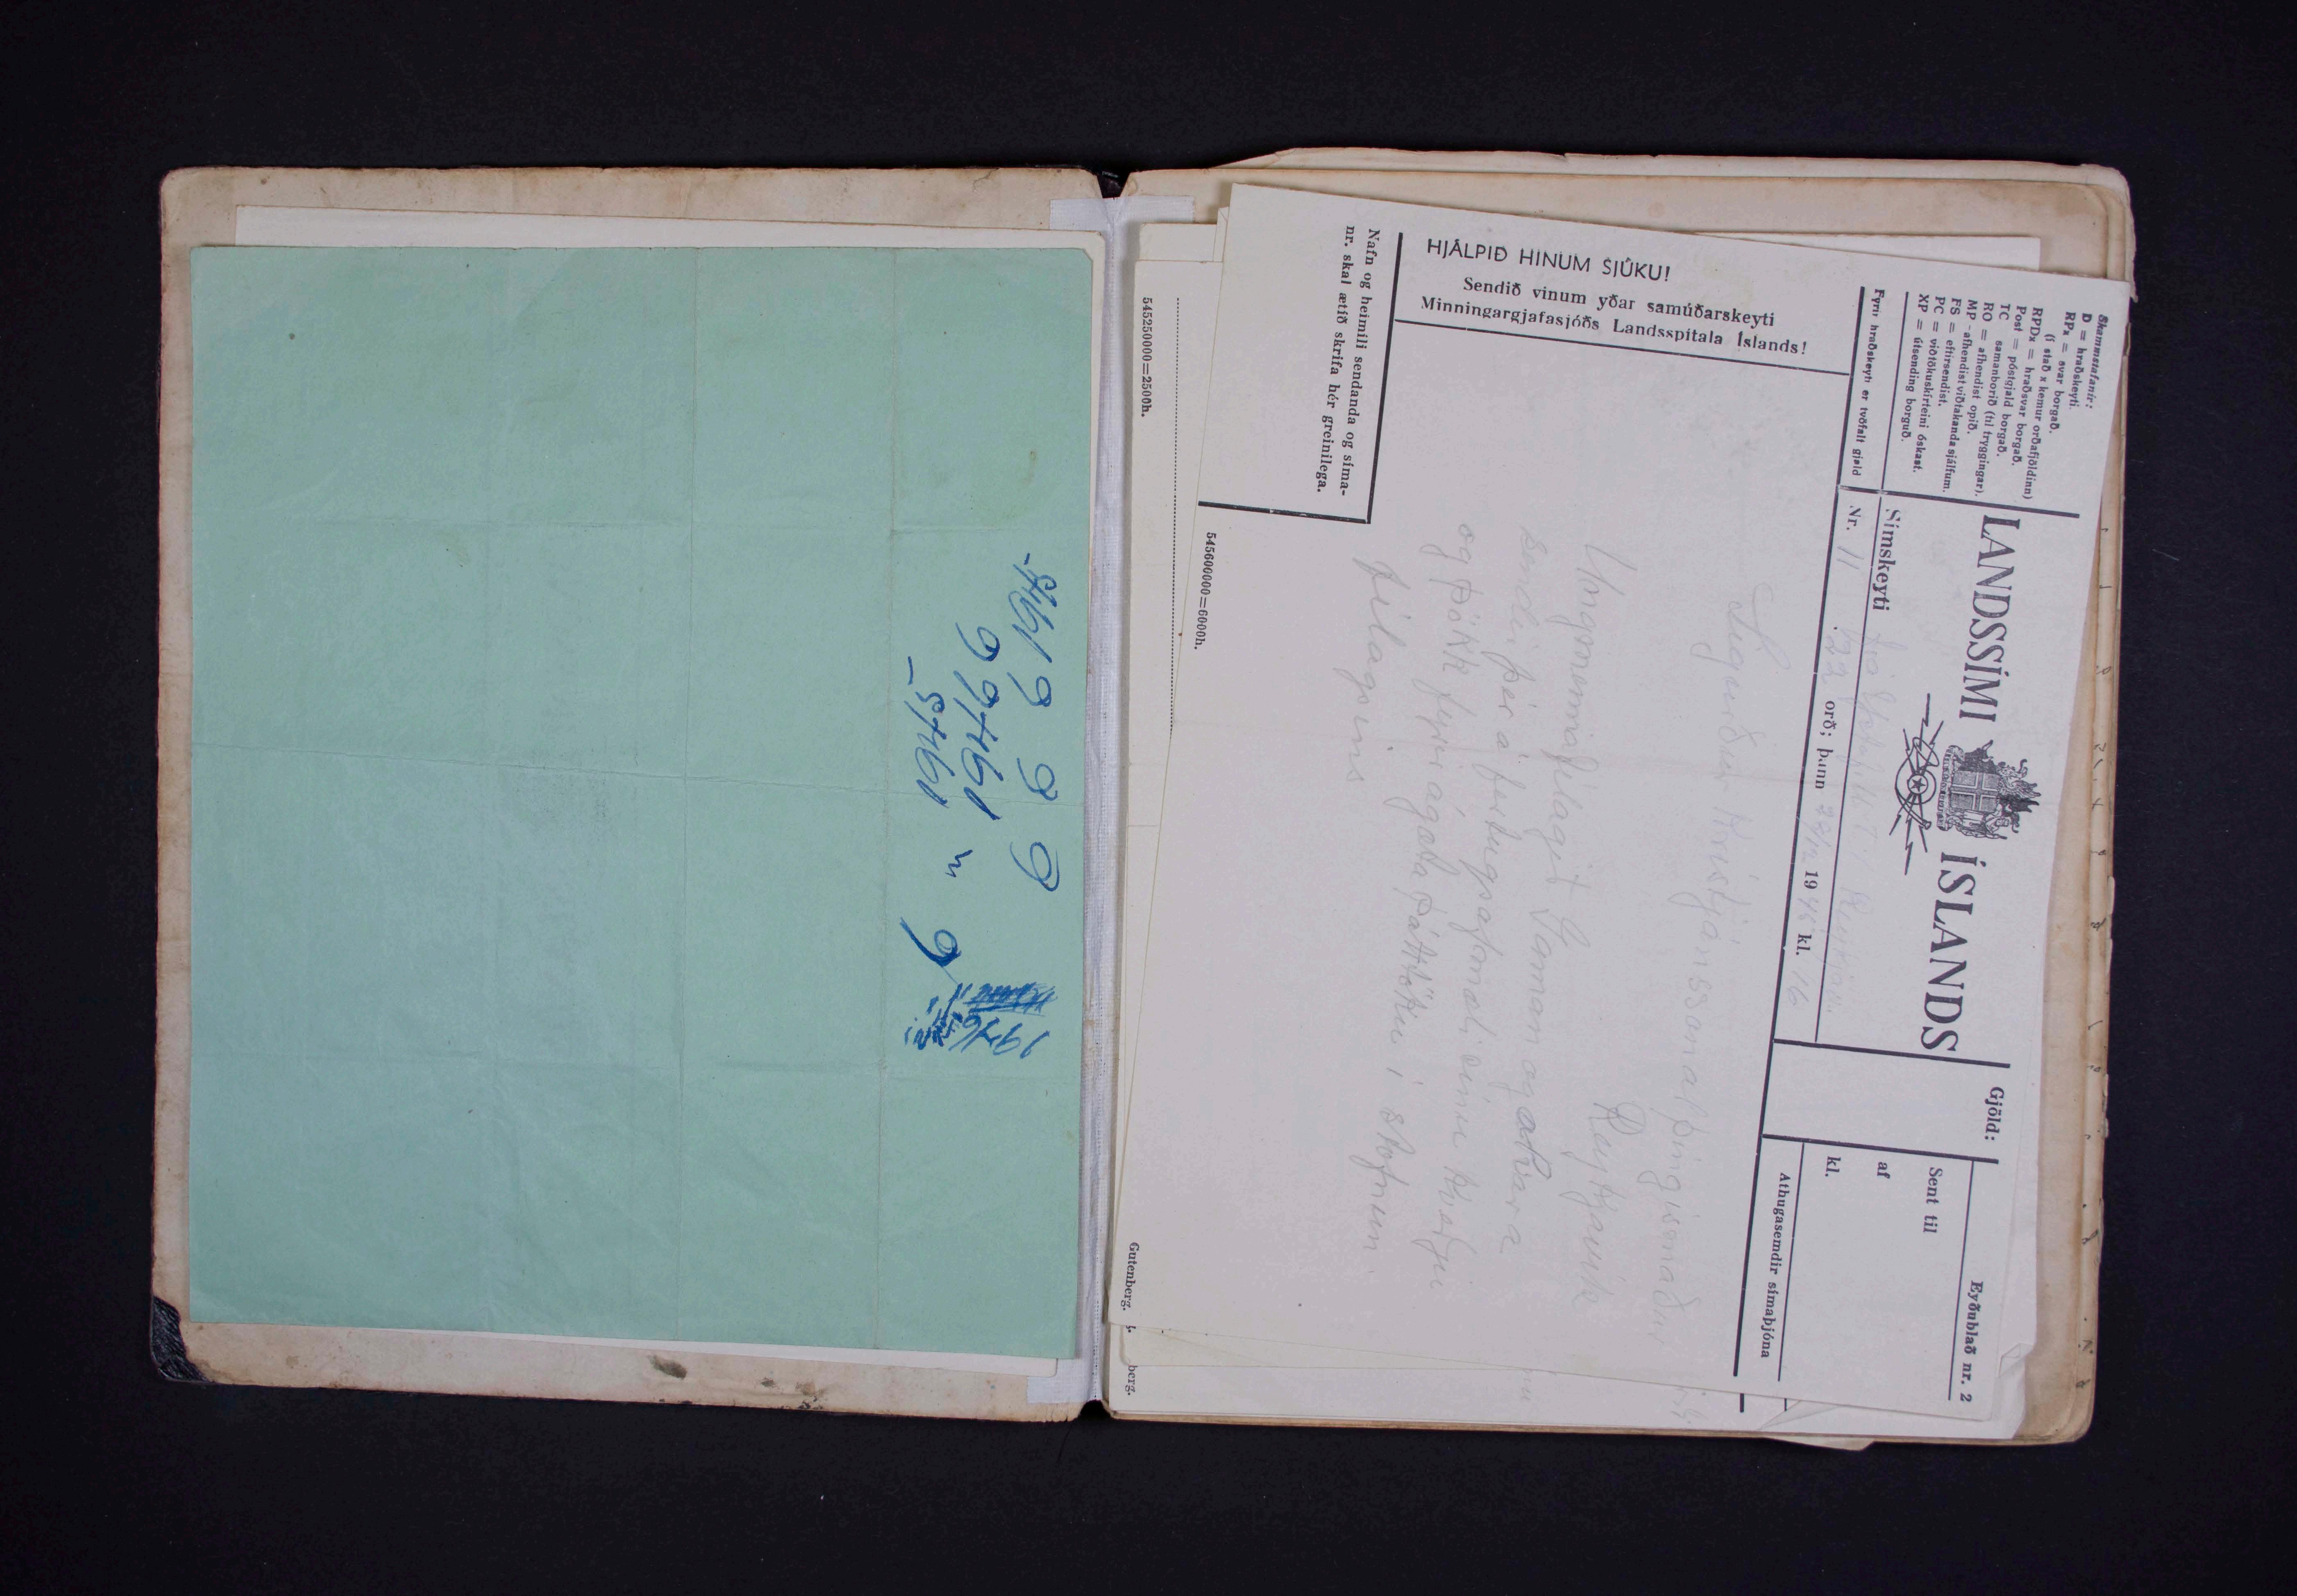 1945
6 6 6 1945
1946 6
6 " 1945
Skammstafanir:
D = hraðskeyti.
RPx = svar borgað.
(í stað x kemur orðafjöldinn)
RPDx = hraðsvar borgað.
Post = póstgjald borgað.
TC = samanborið (til tryggingar).
RO = afhendist opið.
MP = afhendist viðtakanda sjálfum.
FS = eftirsendist.
PC = viðtökuskírteini óskast.
XP = útsending borguð.
Fyrir hraðskeyti er tvöfalt gjald
LANDSSÍMI ÍSLANDS
Símskeyti frá
Nr. 11 22 orð; þann 28/12 1945 kl. 16
Gjöld:
Eyðublað nr. 2
Sent til
af
kl.
Athugasemdir símaþjóna
HJÁLPIÐ HINUM SJÚKU!
Sendið vinum yðar samúðarskeyti
Minningargjafasjóðs Landsspítala Íslands!
Sigurður Kristjánsson alþingismaður
Reykjavík
Ungmennafélagið Gaman og alvara
sendir þér á fertugsafmæli sínu kveðju
og þökk fyrir ágæta þátttöku í stofnun
félagsins
Nafn og heimili sendanda og síma-
nr. skal ætíð skrifa hér greinilega.
545600000=6000h.
545250000=2500h.
Gutenberg.
berg.